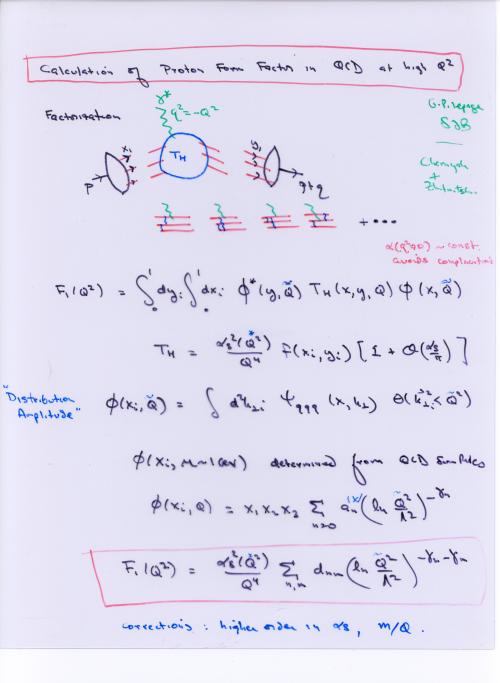 Calculation of Proton Form Factor in QCD at high Q²
γ*
q² = -Q²
Factorization
G.P. Lepage
SJB
x₁
T_H
y₁
p
Chernyak
+
+ ...
α(q²→0) ~ const.
avoids complications
F₁(Q²) = ∫₀¹ dyᵢ ∫₀¹ dxᵢ φ*(y, Q̃) T_H(x, y, Q) φ(x, Q̃)
T_H = αs²(Q̃²)/Q⁴ f(xᵢ, yᵢ) [1 + O(αs/π)]
"Distribution
Amplitude"
φ(xᵢ, Q̃) = ∫ d²k⊥ᵢ ψqqq(x, k⊥) θ(k⊥ᵢ² < Q̃²)
φ(xᵢ, M~1 GeV) determined from QCD Sum Rules
φ(xᵢ, Q) = x₁ x₂ x₃ Σ n≥0 aₙ(x) (ln Q̃²/Λ²)^-γₙ
F₁(Q²) = αs²(Q̃²)/Q⁴ Σ n,m dₙₘ (ln Q̃²/Λ²)^-γₙ-γₘ
corrections: higher order in αs, m/Q.